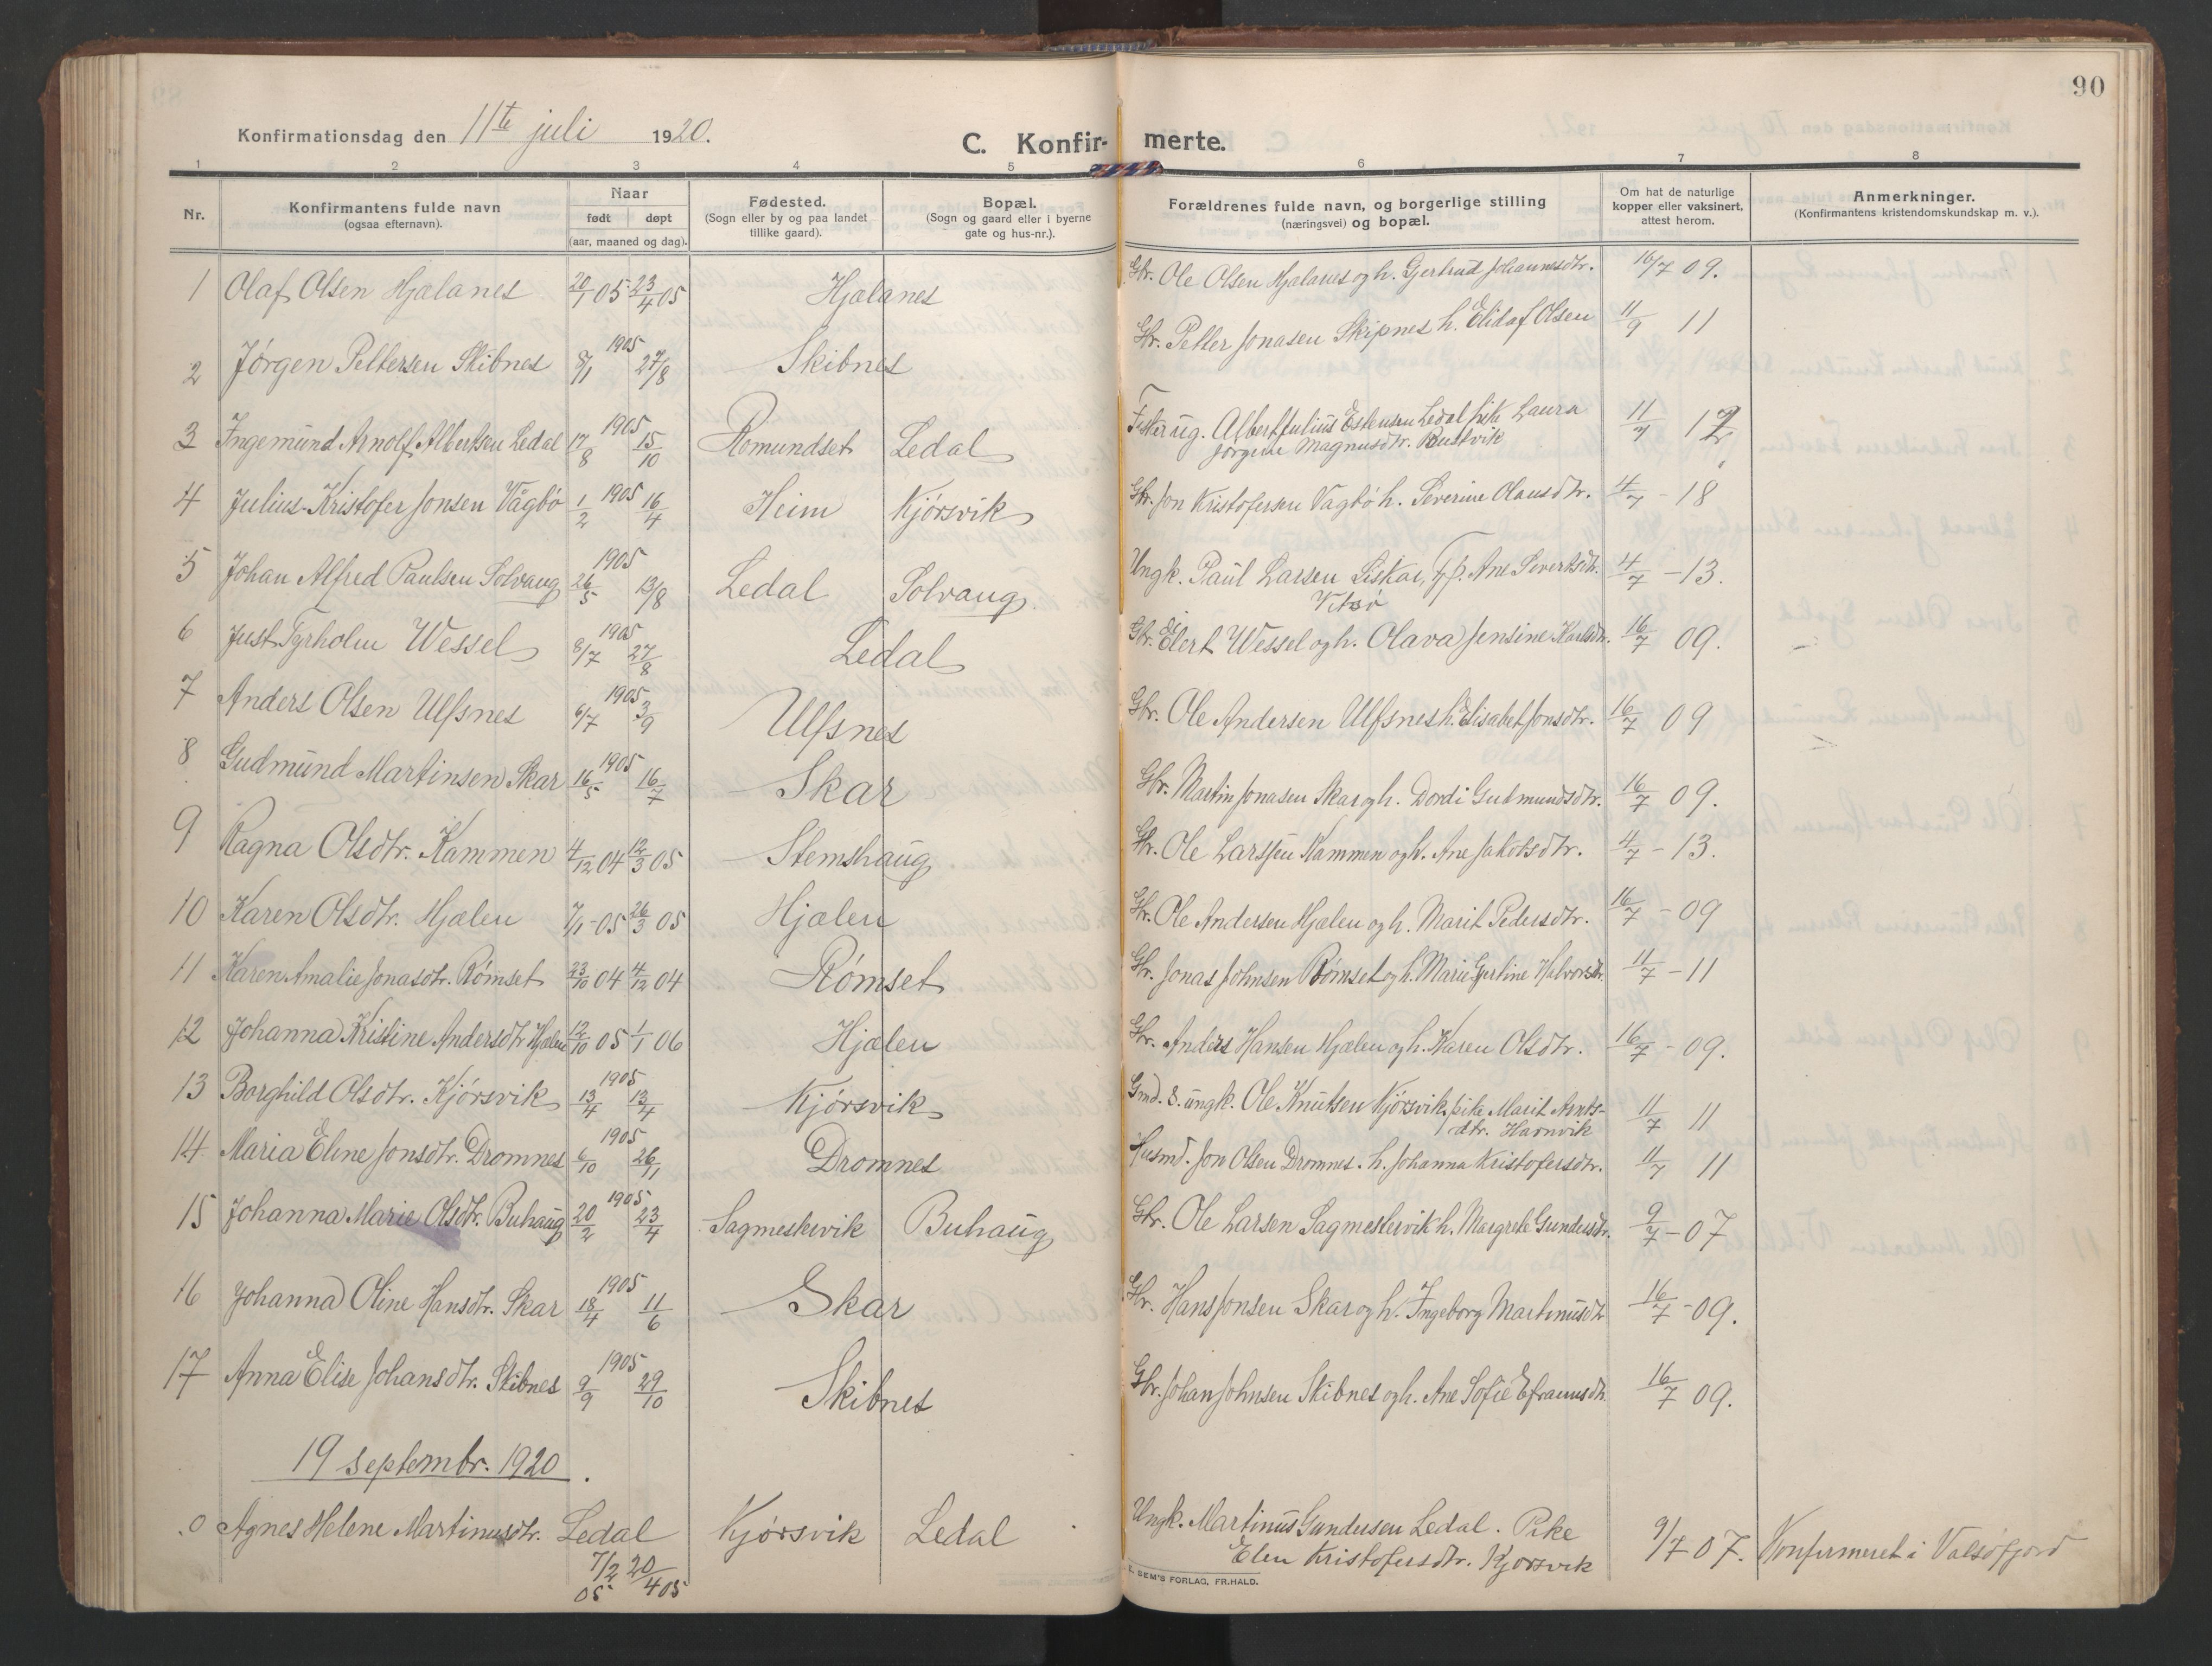 90
Konfirmationsdag den 11te juli 1920.
C. Konfir- merte.
1 2 3 4 5 6 7 8
Nr.
Konfirmantens fulde navn
(ogsaa efternavn).
Naar
født døpt
(aar, maaned og dag).
Fødested.
(Sogn eller by og paa landet
tillike gaard).
Bopæl.
(Sogn og gaard eller i byerne
gate og hus-nr.).
Forældrenes fulde navn, og borgerlige stilling
(næringsvei) og bopæl.
Om hat de naturlige
kopper eller vaksinert,
attest herom.
Anmerkninger.
(Konfirmantens kristendomskundskap m. v.).
1 Olaf Olsen Hjælanes 20/1 05 23/4 05 Hjælanes Gbr. Ole Olsen Hjælanes og h. Gjertrud Johannesdtr. 16/7 09.
2 Jørgen Pettersen Skibnes 1905 8/11 27/8 Skibnes Gbr. Petter Jonasen Skipnes h. Elidaf Olsen 11/9 11
3 Ingemund Arnolf Albertsen Ledal 1905 17/8 15/10 Romundset Ledal Fisker ug. Albert Julius Estensen Ledal pike Laura 11/7 12
Jørgine Magnusdtr. Rustvik
4 Julius Kristofer Jonsen Vågbø 1905 1/2 16/4 Heim Kjørsvik Gbr. Jon Kristofersen Vagbø h. Severine Olausdtr. 4/7 - 18
5 Johan Alfred Paulsen Solvaug 1905 26/5 13/8 Ledal Solvaug. Ungk. Paul Larsen Liskar, Tp. Ane Sivertsdtr. 4/7 - 13.
Vitsø
6 Just Tyrholm Wessel 1905 8/7 27/8 Ledal Gbr. Eilert Wessel og h. Olava Jensine Karlsdtr. 16/7 09.
7 Anders Olsen Ulfsnes 1905 6/7 3/9 Ulfsnes Gbr. Ole Andersen Ulfsnes h. Elisabet Jonsdtr. 16/7 09
8 Gudmund Martinsen Skar 1905 16/5 16/7 Skar Gbr. Martin Jonasen Skar og h. Dordi Gudmundsdtr. 16/7 09.
9 Ragna Olsdtr. Kammen 4/12 04 12/3 05 Stemshaug Gbr. Ole Larssen Kammen og h. Ane Jakobsdtr. 4/7 - 13.
10 Karen Olsdtr. Hjælen 7/1 - 05 26/3 05 Hjælen Gbr. Ole Andersen Hjælen og h. Marit Pedersdtr. 16/7 - 09
11 Karen Amalie Jonasdtr. Rømset 23/10 04 4/12 04 Rømset Gbr. Jonas Johnsen Rømset og h. Marie Gjertine Halvorsdtr. 11/7 - 11
12 Johanna Kristine Andersdtr Hjælen 12/10 05 1/1 06 Hjælen Gbr. Anders Hansen Hjælen og h. Karen Olsdtr. 16/7 - 09.
13 Borghild Olsdtr. Kjørsvik 1905 13/4 13/4 Kjørsvik Gmd. S. ungk. Ole Knutsen Kjørsvik, pike Marit Arnts- 11/7 11
dtr. Hamvik
14 Maria Eline Jonsdtr. Dromnes 1905 6/10 26/11 Dromnes Husmd. Jon Olsen Dromnes. h. Johanna Kristofersdtr. 11/7 11
15 Johanna Marie Olsdtr. Buhaug 1905 20/2 23/4 Sagmestervik Buhaug Gbr. Ole Larsen Sagmestervik h. Margrete Gundersdtr. 9/7 - 07
16 Johanna Oline Hansdtr. Skar 1905 18/4 11/6 Skar Gbr. Hans Jonsen Skar og h. Ingeborg Martinusdtr 16/7 - 09.
17 Anna Elise Johansdtr. Skibnes 1905 9/9 29/10 Skibnes Gbr. Johan Johnsen Skibnes og h. Ane Sofie Efraimsdtr. 16/7 09.
19 septembr. 1920.
0 Agnes Helene Martinusdtr. Ledal Kjørsvik Ledal Ungk. Martinus Gundersen Ledal. Pike 9/7 07. Konfirmeret i Valsøfjord
7/2 05 20/4 05 Elen Kristofersdtr. Kjørsvik
E. SEM'S FORLAG, FR.HALD.